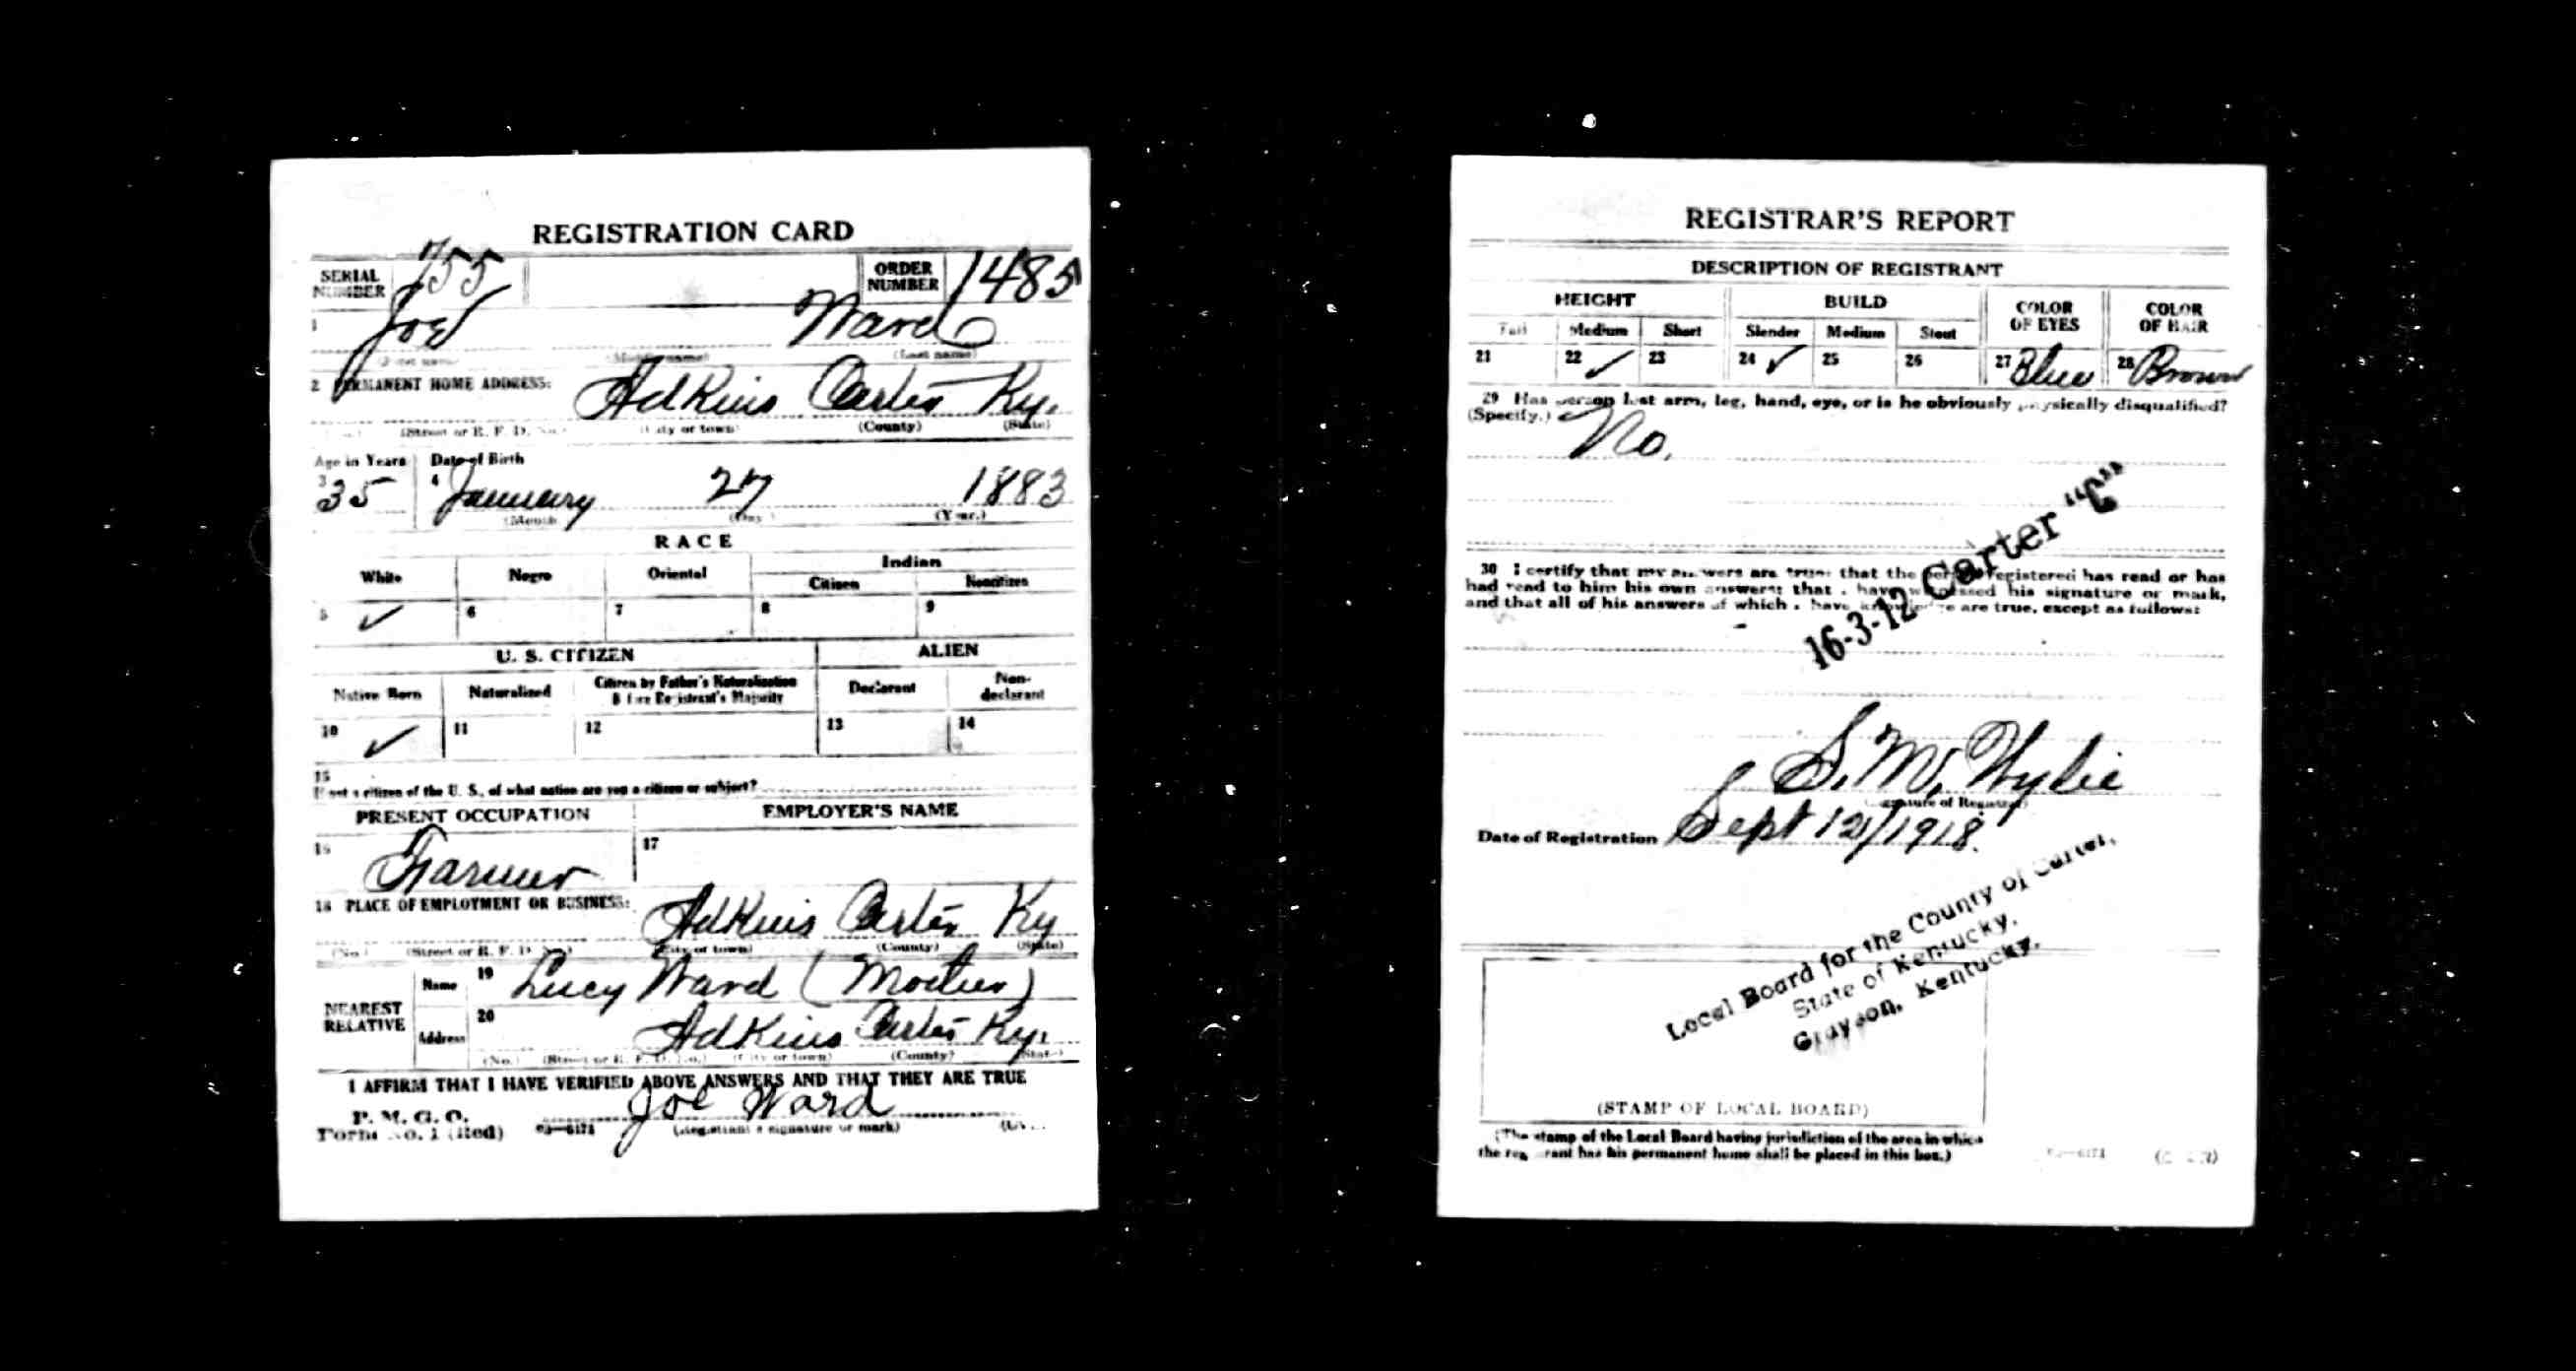 REGISTRATION CARD
SERIAL NUMBER 755 ORDER NUMBER 1485
1 Joe Ward
(Middle name) (Last name)
2 PERMANENT HOME ADDRESS: Adkins Carter Ky.
(Street or R. F. D. No.) (City or town) (County) (State)
Age in Years Date of Birth
3 35 4 January 27 1883
(Month) (Day) (Year.)
RACE
White Negro Oriental Indian
Citizen Noncitizen
5 ✓ 6 7 8 9
U. S. CITIZEN ALIEN
Native Born Naturalized Citizen by Father's Naturalization Before Registrant's Majority Declarant Non-declarant
10 ✓ 11 12 13 14
15
If not a citizen of the U. S., of what nation are you a citizen or subject?
PRESENT OCCUPATION EMPLOYER'S NAME
16 Farmer 17
18 PLACE OF EMPLOYMENT OR BUSINESS: Adkins Carter Ky
(No.) (Street or R. F. D. No.) (City or town) (County) (State)
NEAREST RELATIVE Name 19 Lucy Ward (Mother)
Address 20 Adkins Carter Ky.
(No.) (Street or R. F. D. No.) (City or town) (County) (State)
I AFFIRM THAT I HAVE VERIFIED ABOVE ANSWERS AND THAT THEY ARE TRUE
P. M. G. O.
Form No. 1 (Red) Joe Ward
(Registrant's signature or mark)
REGISTRAR'S REPORT
DESCRIPTION OF REGISTRANT
HEIGHT BUILD COLOR OF EYES COLOR OF HAIR
Tall Medium Short Slender Medium Stout
21 22 ✓ 23 24 ✓ 25 26 27 Blue 28 Brown
29 Has person lost arm, leg, hand, eye, or is he obviously physically disqualified?
(Specify.) No.
30 I certify that my answers are true; that the person registered has read or has
had read to him his own answers; that I have witnessed his signature or mark,
and that all of his answers of which I have knowledge are true, except as follows:
16-3-12 Carter "C"
S. M. Wylie
(Signature of Registrar)
Date of Registration Sept 12/1918.
Local Board for the County of Carter,
State of Kentucky,
Grayson, Kentucky.
(STAMP OF LOCAL BOARD)
(The stamp of the Local Board having jurisdiction of the area in which
the registrant has his permanent home shall be placed in this box.)